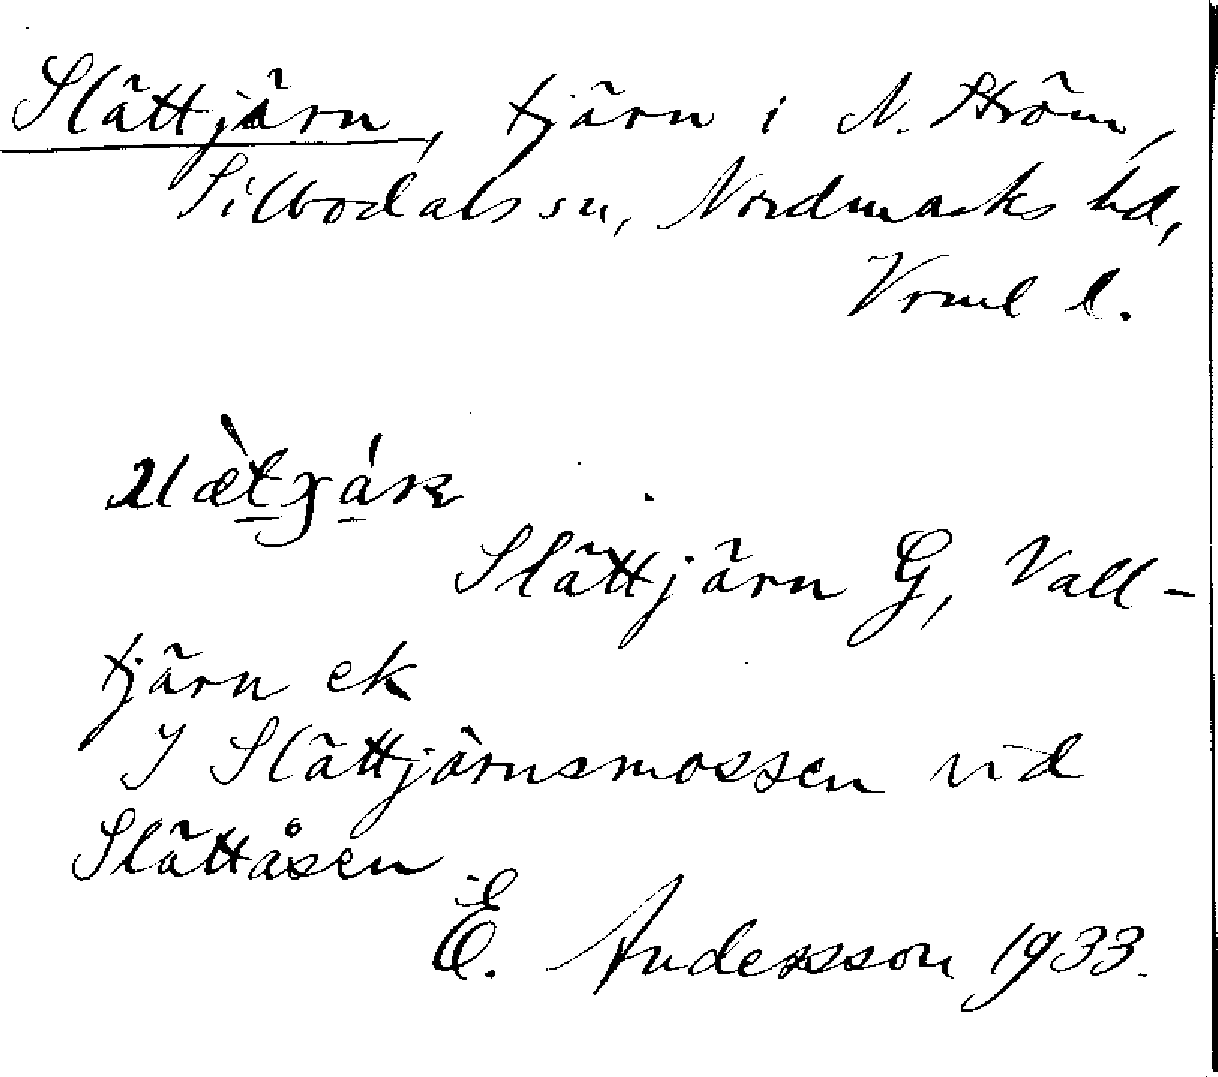 Slättjärn, tjärn i N. Ström,
Silbodals sn, Nordmarks hd,
Vrml l.
Slättjärn G, Vall-
tjärn ek
I Slättjärnsmossen vid
Slättåsen
E. Andersson 1933.